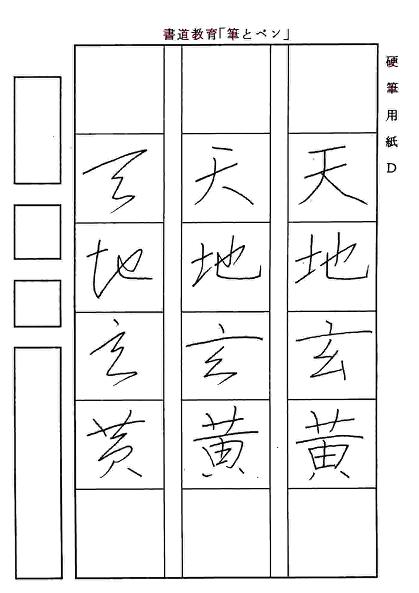 書道教育「筆とペン」
硬筆用紙D
天地玄黄
天地玄黄
天地玄黄